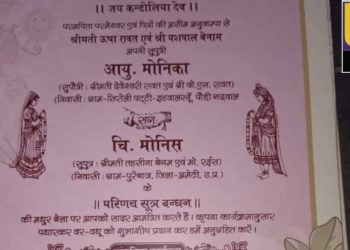 ।। जय कन्डोलिया देव ।।
परमपिता परमेश्वर एवं पित्रों की असीम अनुकम्पा से
श्रीमती ऊषा रावत एवं श्री यशपाल बेनाम
अपनी सुपुत्री
आयु. मोनिका
(सुपौत्री : श्रीमती देवेश्वरी रावत एवं श्री के.एस. रावत)
(निवासी : ग्राम-सिरोली पट्टी-इडवालस्यूँ, पौड़ी गढ़वाल
संग
चि. मोनिस
(सुपुत्र : श्रीमती तहसीना बेगम एवं मो. रईस)
(निवासी : ग्राम-पुरेबाज, जिला-अमेठी, उ.प्र.)
के
।। परिणय सूत्र बन्धन ।।
की मधुर बेला पर आपको सादर आमंत्रित करते हैं। कृपया कार्यक्रमानुसार
पधारकर वर-वधू को शुभाशीष प्रदान कर हमें अनुग्रहित करें।